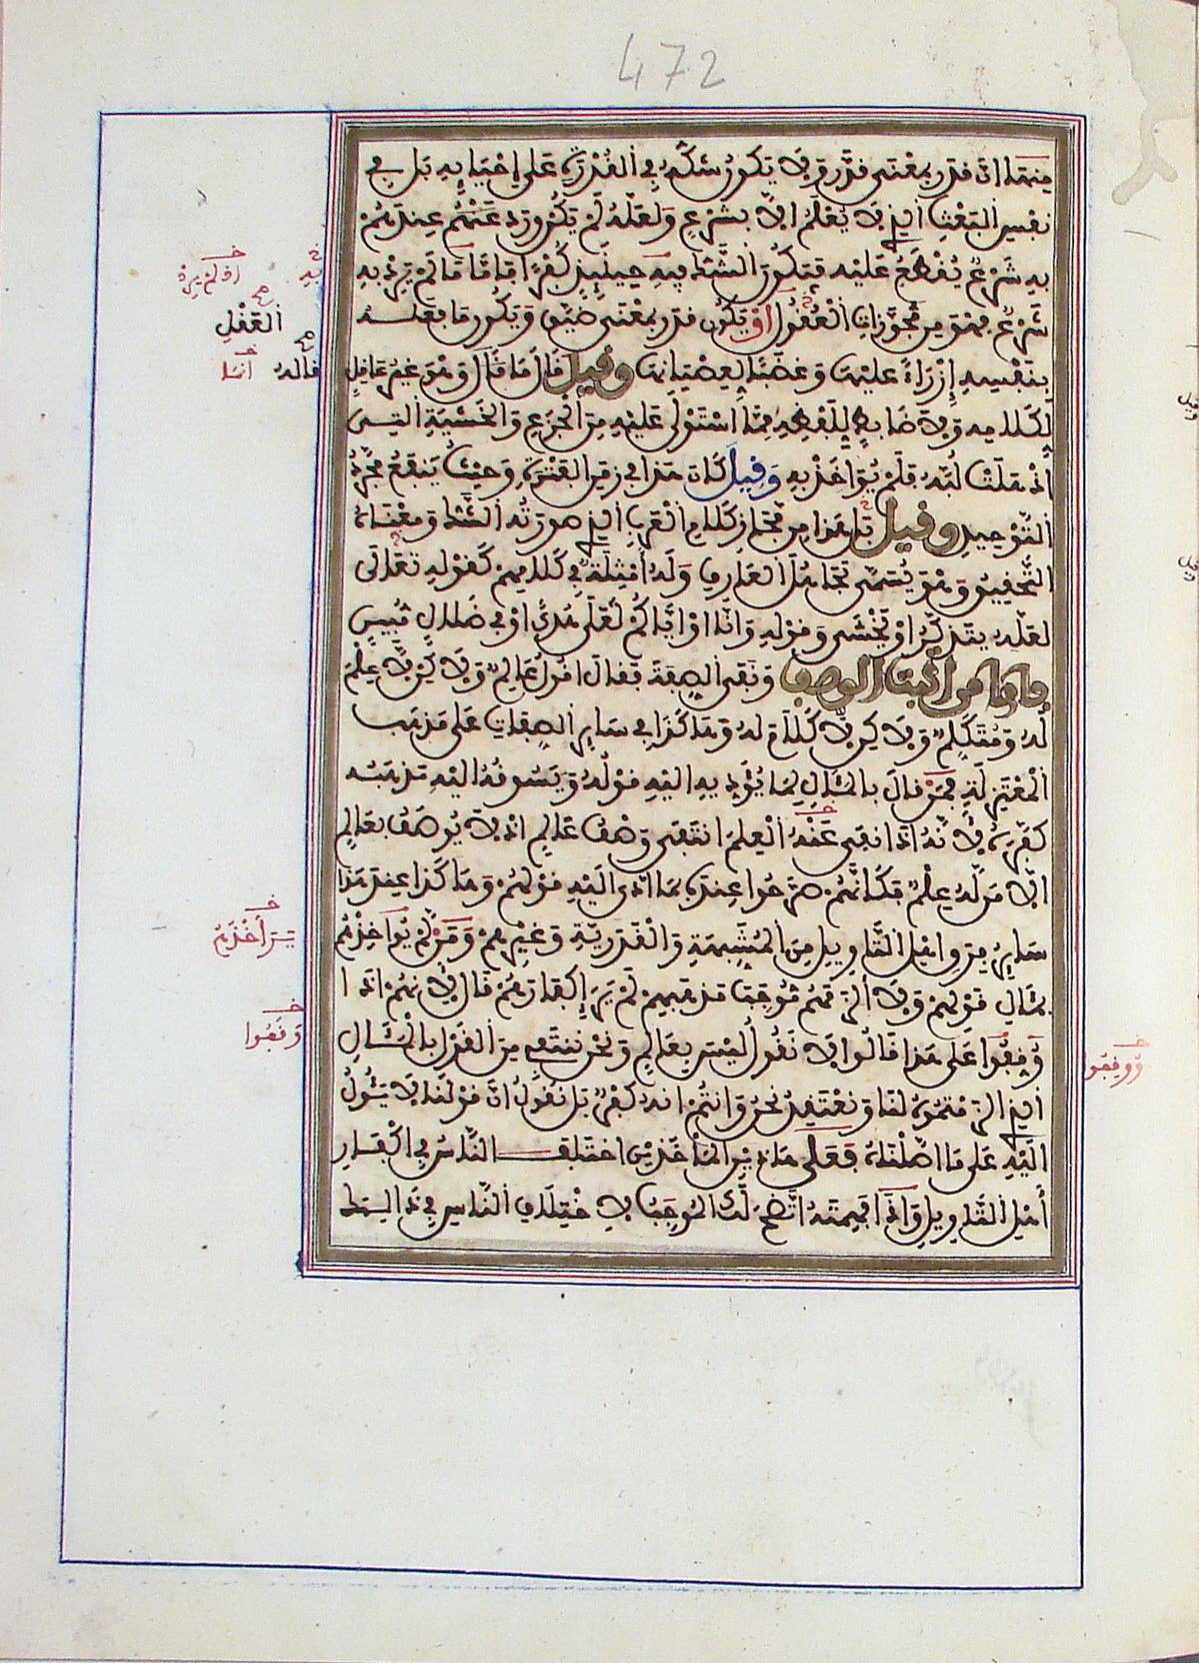 472
منها ان قدر بمعنى قدّر ولا يكون شكه في القدرة على إحيايه بل في
نفس البعث الذي لا يعلم الا بشرع ولعله لم يكن ورد عندهم
به شرع يقطع عليه فيكون الشك فيه حينئذ كفرا فاما ما لم يرد به
شرع فهو من مجوزات العقول او يكون قدر بمعنى ضيق ويكون ما فعله
بنفسه إزراء عليها وغضبا لعصيانها وقيل قال ما قال وهو غير عاقل
لكلامه ولا ضابط للفظه مما استولى عليه من الجزع والخشية التى
اذهلت لبه فلم يؤاخذ به وقيل كان هذا في زمن الفترة وحيث ينفع مجرد
التوحيد وقيل بل هذا من مجاز كلام العرب الذي صورته الشك ومعناه
التحقيق وهو يسمى تجاهل العارف وله أمثلة في كلامهم كقوله تعالى
لعله يتذكر او يخشى وقوله وانا او اياكم لعلى هدى او في ضلال مبين
فاما من اثبت الوصف ونفى الصفة فقال اقول عالم ولاكن لا علم
له ومتكلم ولاكن لا كلام له وهاكذا في ساير الصفات على مذهب
المعتزلة فمن قال بالمئال لما يؤديه اليه قوله ويسوقه اليه مذهبه
كفره لأنه اذا نفى عنه العلم انتفى وصف عالم اذ لا يوصف بعالم
الا من له علم فكأنهم صرحوا عنده بما ادى اليه قولهم وهاكذا عند هذا
ساير فرق اهل التاويل من المشبهة والقدرية وغيرهم ومن لم يؤاخذهم
بمئال قولهم ولا الزمهم موجب مذهبهم لم ير إكفارهم قال لأنهم اذا
وُقفوا على هذا قالوا لا نقول ليس بعالم ونحن ننتفى من القول بالمئال
الذي الزمتموه لنا ونعتقد نحن وانتم انه كفر بل نقول ان قولنا لا يئول
اليه على ما اصلناه فعلى هاذين المأخذين اختلف الناس في اكفار
أهل التاويل واذا فهمته اتضح لك الموجب لاختلاف الناس في ذالك
به
او لم يرد
العقل
قاله انسا
يرا أخذهم
وقفوا
ووقفوا